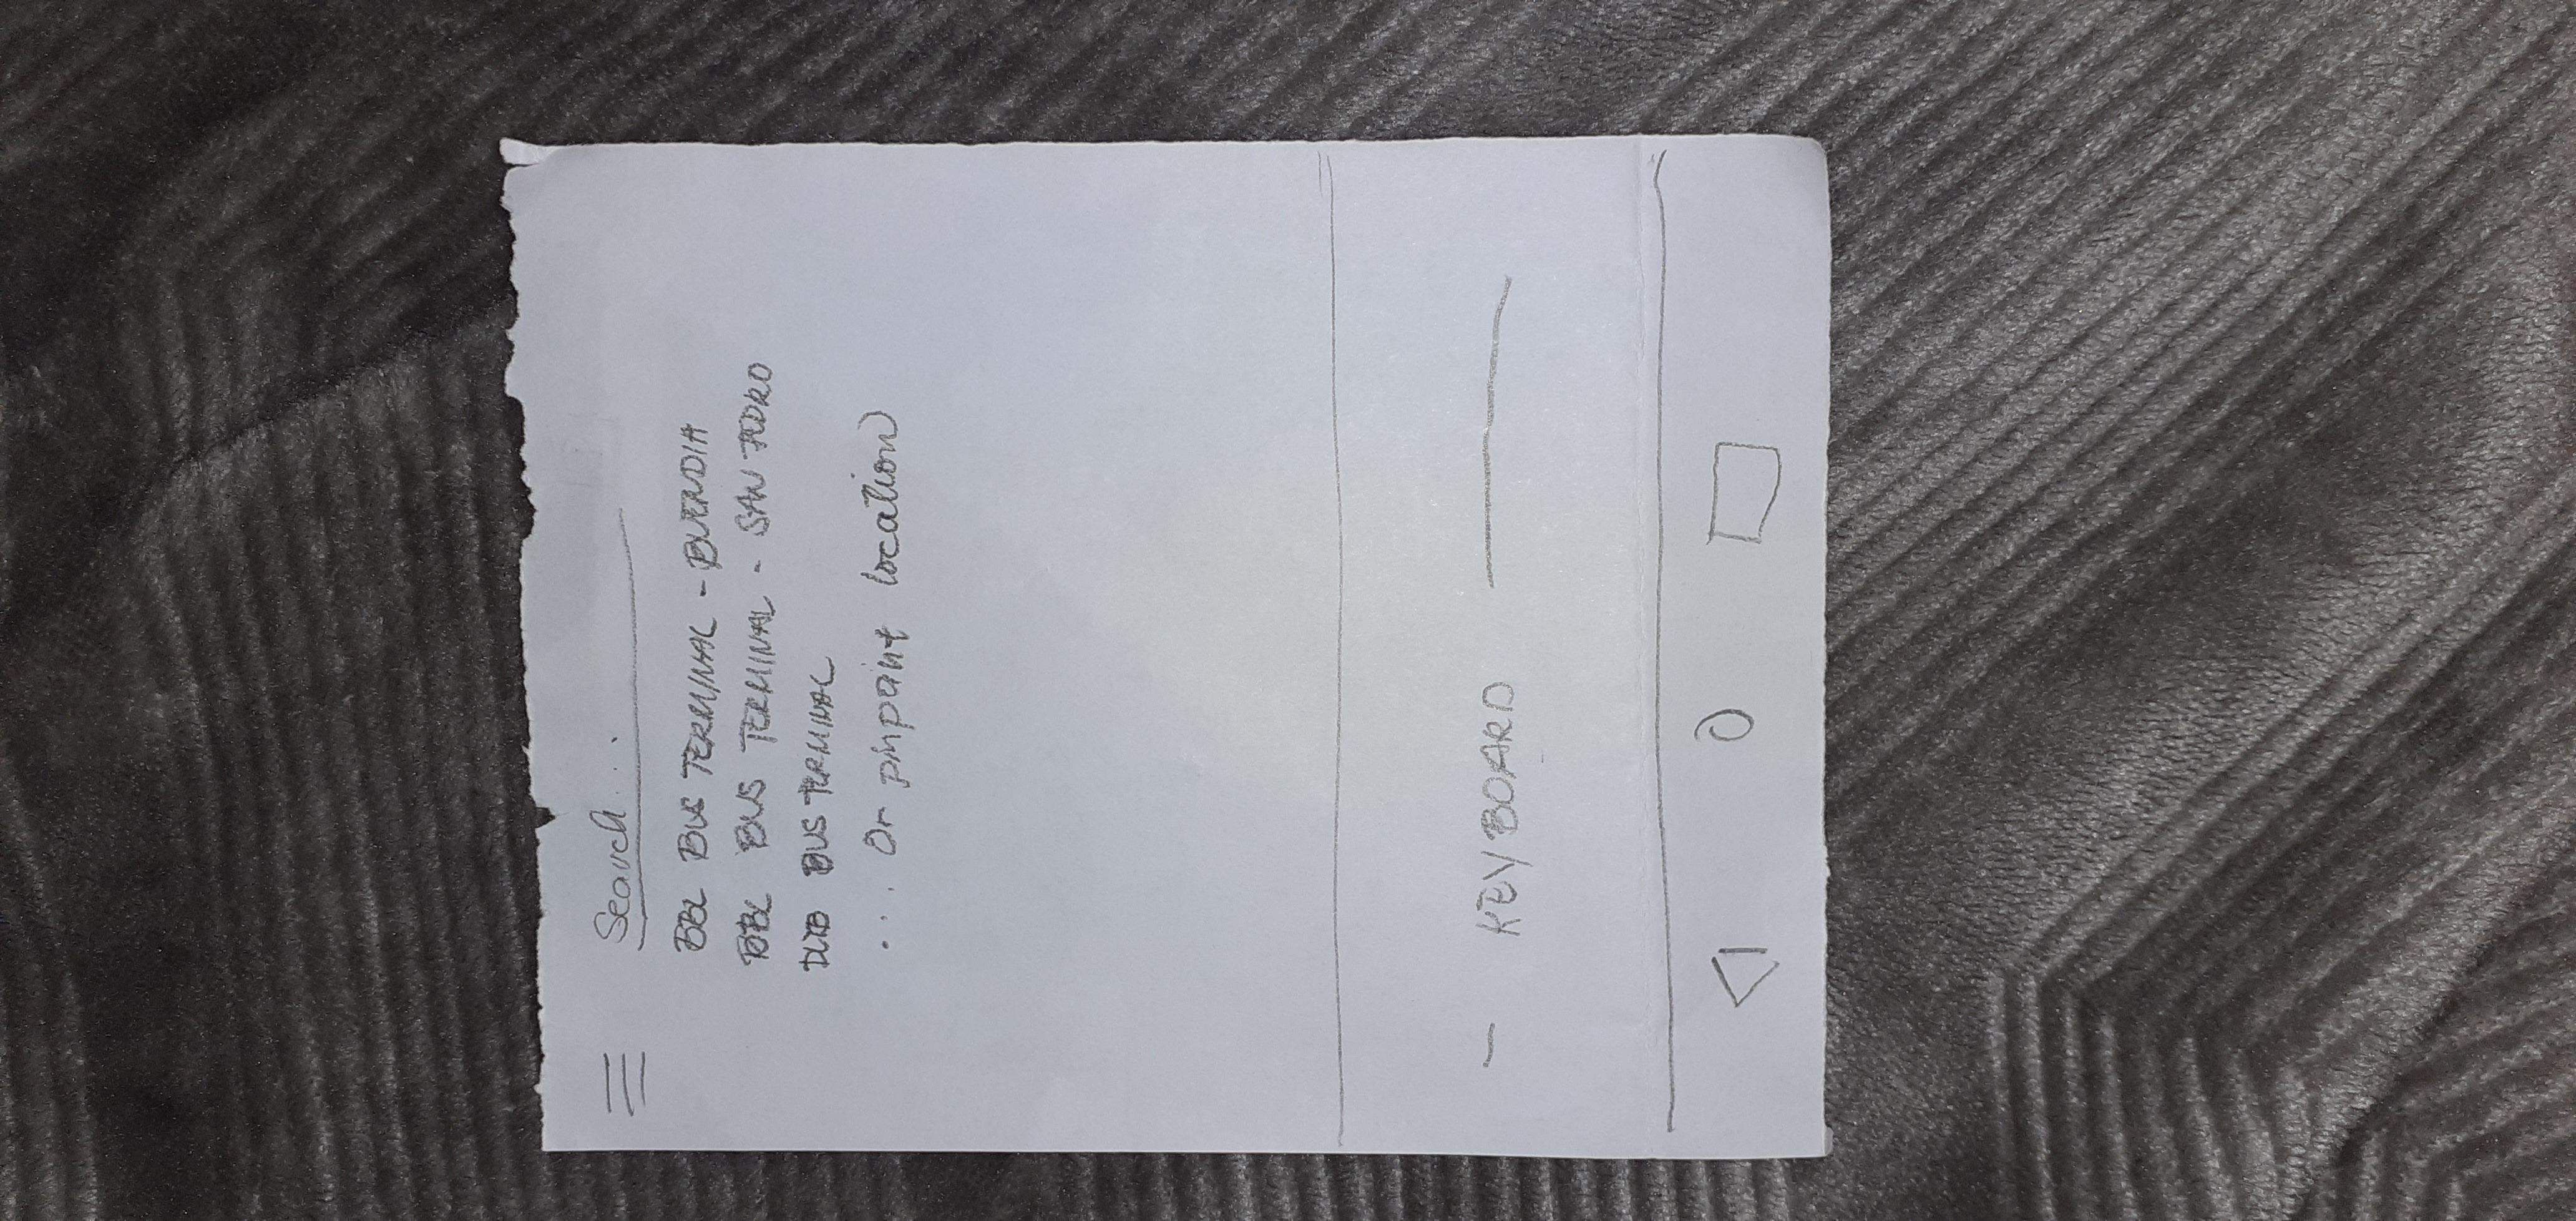 Search...
BBL BUS TERMINAL - BUENDIA
BBL BUS TERMINAL - SAN PEDRO
BUS TERMINAL
... Or pinpoint location
KEYBOARD